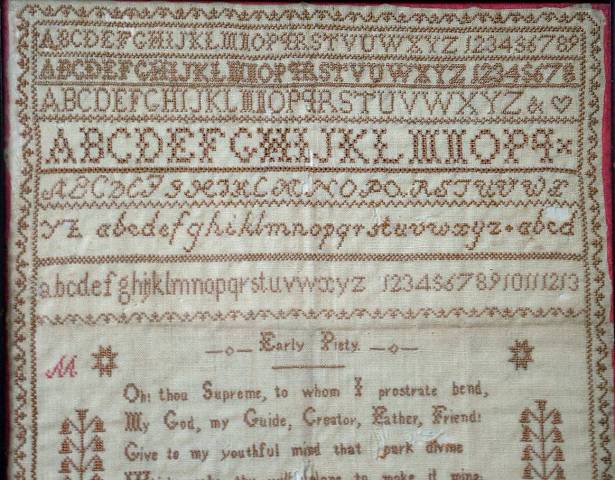 ABCDEFGHIJKLMNOPQRSTVUWXYZ 123456789
ABCDEFGHIJKLMNOPQRSTVUWXYZ 12345678
ABCDEFGHIJKLMNOPQRSTUVWXYZ & ♡
ABCDEFGHIJKLMNOPQ×
ABCDEFGHIJKLMNOPQRSTUVWX
YZ abcdefghiklmnopqrstuvwxyz·abcd
abcdefghijklmnopqrstuvwxyz 12345678910111213
Early Piety.
M
Oh! thou Supreme, to whom I prostrate bend,
My God, my Guide, Creator, Father, Friend!
Give to my youthful mind that spark divine
to make it mine